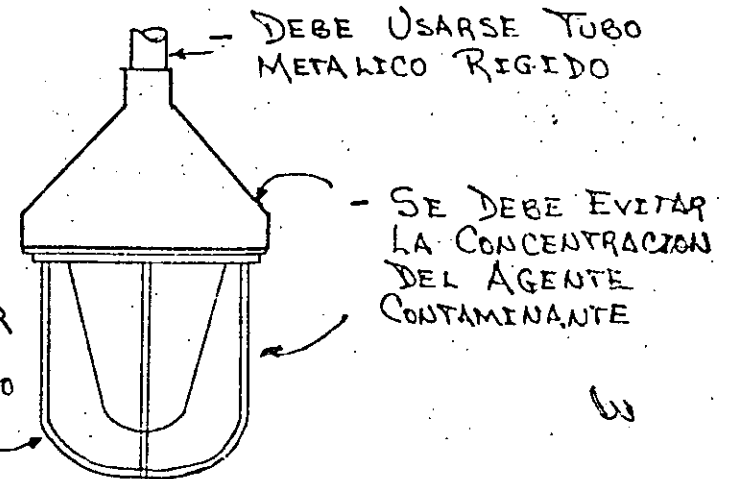 - DEBE USARSE TUBO
METALICO RIGIDO
- SE DEBE EVITAR
LA CONCENTRACION
DEL AGENTE
CONTAMINANTE